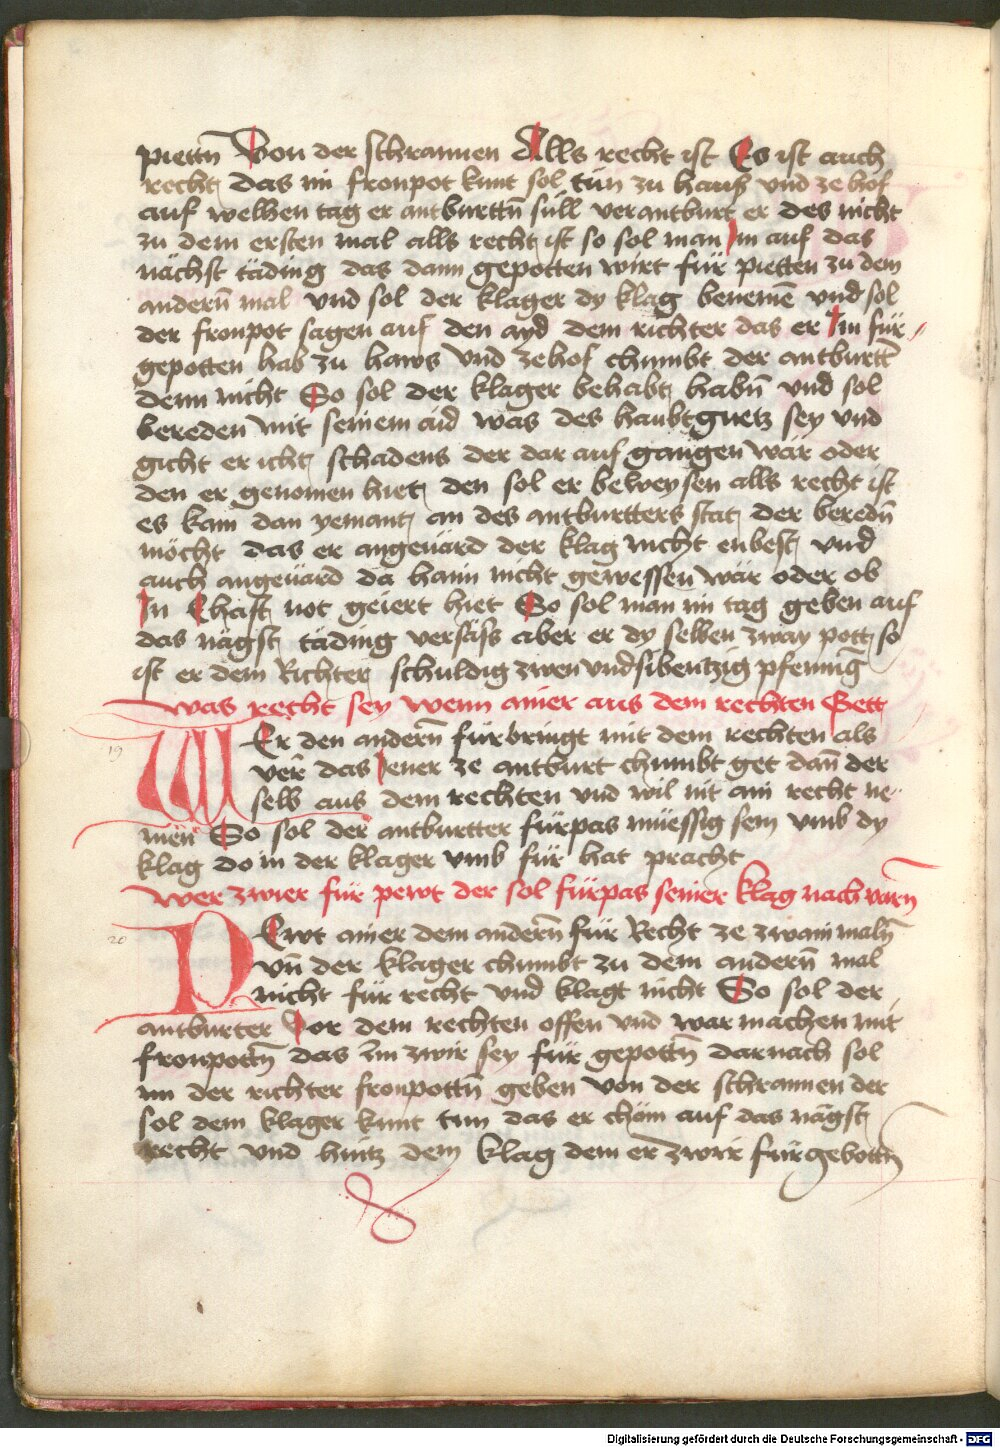 piettn̄ Von der schrannen Alls recht ist Es ist auch
recht das im fronpot kunt sol tün zu hauß vnd ze hof
auf welhen tag er antburttn̄ süll verantburt er des nicht
zu dem ersten mal alls recht ist so sol man Im auf das
nächst täding das dann gepotten wirt für pietten zu dem
andern̄ mal vnd sol der klager dy klag benemē vnd sol
der fronpot sagen auf den ayd dem richter das er Im für-
gepotten hab zu haws vnd zehof chumbt der antburtt̄
denn nicht So sol der klager behabt habn̄ vnd sol
bereden mit seinem aid was des haubtguetz sey vnd
gicht er icht schadens der dar auf gangen wär oder
den er genomen hiet den sol er beweysen alls recht ist
es kam dan yemant an des antburtters stat der beredn̄
möcht das er angeuärd der klag nicht enbest vnd
auch angeuärd da haim nicht gewessen wär oder ob
In Ehaft not geiert hiet So sol man im tag geben auf
das nägst täding versäss aber er dy selben zway pott so
ist er dem Richter schuldig zwen vndsibentzig pfenninḡ
was recht sey wenn ainer aus dem rechten Gett
19
WEr den andern̄ fürbringt mit dem rechten als
verr̄ das Jener ze antburt chumbt get dan̄ der
selb aus dem rechten vnd wil nit ain recht ne-
men So sol der antburtter fürpas müessig sein vmb dy
klag do in der klager vmb für hat pracht
wer zwier für pewt der sol fürpas seiner klag nach varn̄
20
PEwt ainer dem andern̄ für Recht ze zwain maln̄
vn̄ der klager chumbt zu dem andern̄ mal
nicht für recht vnd klagt nicht So sol der
antburter Vor dem rechten offen vnd war machen mit
fronpottn̄ das Im zwir sey für gepottn̄ darnach sol
im der richter fronpottn̄ geben von der schrannen der
sol dem klager kunt tun das er chöm auf das nägst
recht vnd hintz dem klag dem er zwir fürgebottn̄
Digitalisierung gefördert durch die Deutsche Forschungsgemeinschaft - DFG